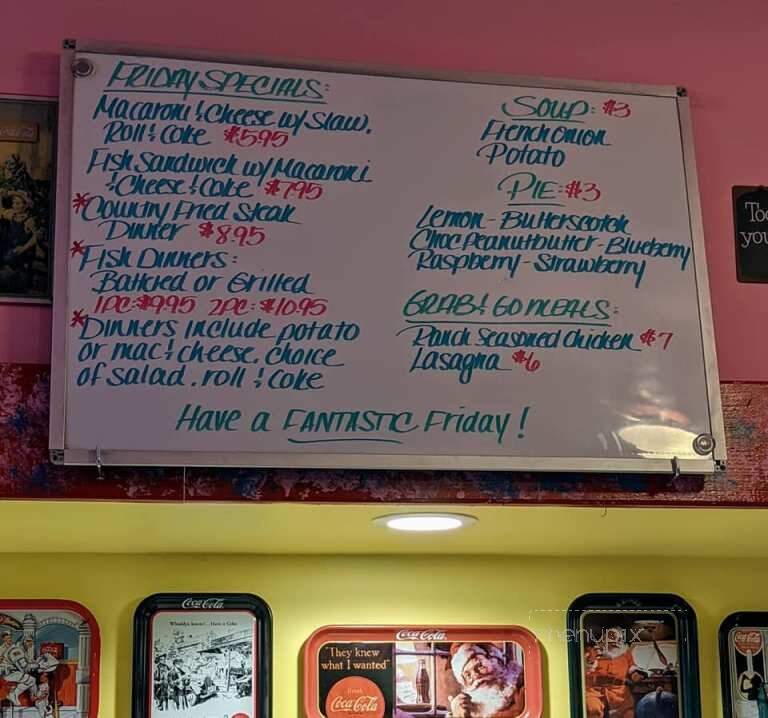 FRIDAY SPECIALS:
Macaroni & Cheese w/ Slaw,
Roll & Coke $5.95
Fish Sandwich w/ Macaroni
& Cheese & Coke $7.95
*Country Fried Steak
Dinner $8.95
*Fish Dinners:
Battered or Grilled
1PC: $9.95 2PC: $10.95
*Dinners include potato
or mac & cheese, choice
of salad, roll & Coke
SOUP: $3
French Onion
Potato
PIE: $3
Lemon - Butterscotch
Choc Peanutbutter - Blueberry
Raspberry - Strawberry
GRAB & GO MEALS:
Ranch Seasoned Chicken $7
Lasagna $6
Have a FANTASTIC Friday!
Coca-Cola
Coca-Cola
"They knew
what I wanted"
Coca-Cola
menupix